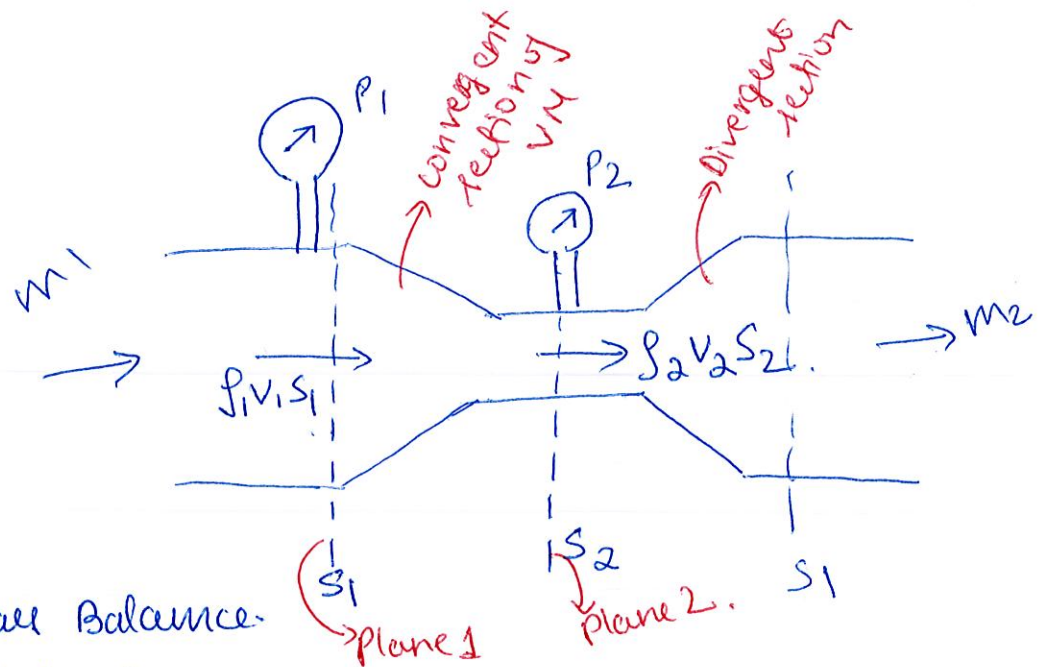 P1
convergent
section of
VM
Divergent
section
P2
m1
ρ1V1S1
ρ2V2S2.
m2
S1
S2
S1
Balance.
Plane 1
Plane 2.